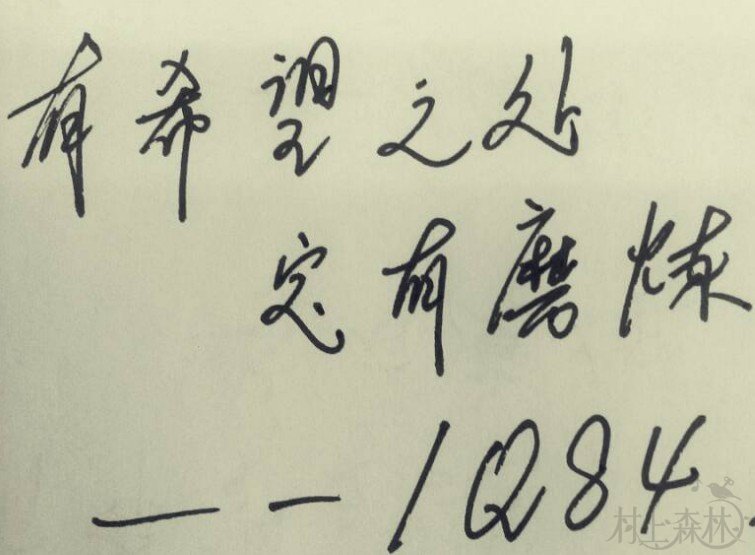 有希望之处
定有磨炼
——1Q84.
村上森林